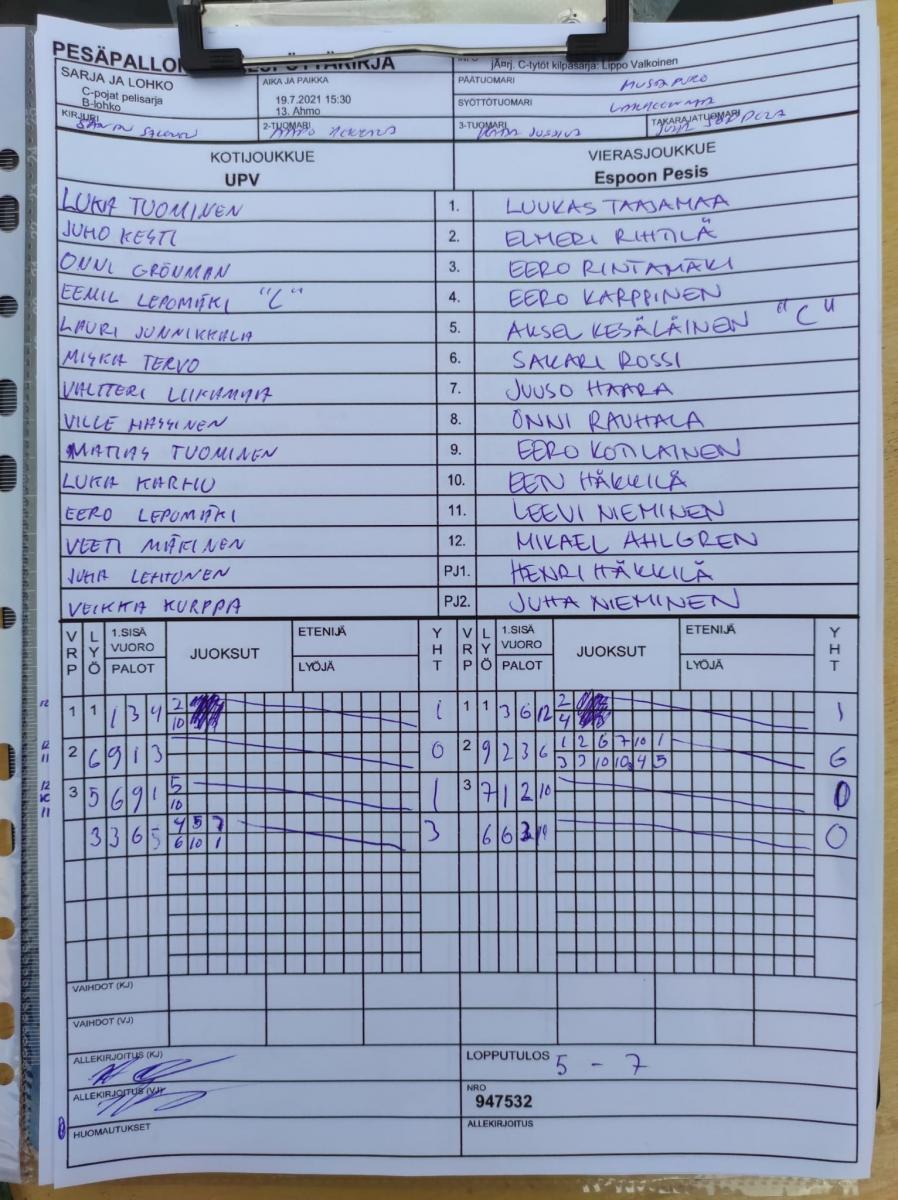 PESÄPALLO
jÄrj. C-tytöt kilpasarja: Lippo Valkoinen
SARJA JA LOHKO
C-pojat pelisarja
B-lohko
AIKA JA PAIKKA
19.7.2021 15:30
13. Ahmo
PÄÄTUOMARI
SYÖTTÖTUOMARI
KIRJURI
2-TUOMARI
3-TUOMARI
TAKARAJATUOMARI
KOTIJOUKKUE
UPV
VIERASJOUKKUE
Espoon Pesis
LUKA TUOMINEN 1. LUUKAS TAAJAMAA
JUHO KESTI 2. ELMERI RIHTILÄ
ONNI GRÖNMAN 3. EERO RINTAMÄKI
EEMIL LEPOMÄKI "C" 4. EERO KARPPINEN
LAURI JUNNIKKALA 5. AKSEL KESÄLÄINEN "C"
MISKA TERVO 6. SAKARI ROSSI
VALTTERI LUKAMAA 7. JUUSO HAARA
VILLE HASSINEN 8. ONNI RAUHALA
MATIAS TUOMINEN 9. EERO KOTILAINEN
LUKA KARHU 10. EETU HÄKKILÄ
EERO LEPOMÄKI 11. LEEVI NIEMINEN
VEETI MÄKINEN 12. MIKAEL AHLGREN
JUHA LEHTONEN PJ1. HENRI HÄKKILÄ
VEIKKA KURPPA PJ2. JUHA NIEMINEN
VRP LYÖ 1.SISÄ VUORO PALOT JUOKSUT ETENIJÄ LYÖJÄ YHT VRP LYÖ 1.SISÄ VUORO PALOT JUOKSUT ETENIJÄ LYÖJÄ YHT
1 1 1 3 4 2 1 1 1 3 6 12 2 1
10 4
2 6 9 1 3 0 2 9 2 3 6 1 2 6 7 10 1 6
3 3 10 10 4 5
3 5 6 9 1 5 1 3 7 1 2 10 0
10
3 3 6 5 4 5 7 3 6 6 0
6 10 1
VAIHDOT (KJ)
VAIHDOT (VJ)
ALLEKIRJOITUS (KJ)
LOPPUTULOS 5 - 7
ALLEKIRJOITUS (VJ)
NRO
947532
HUOMAUTUKSET
ALLEKIRJOITUS